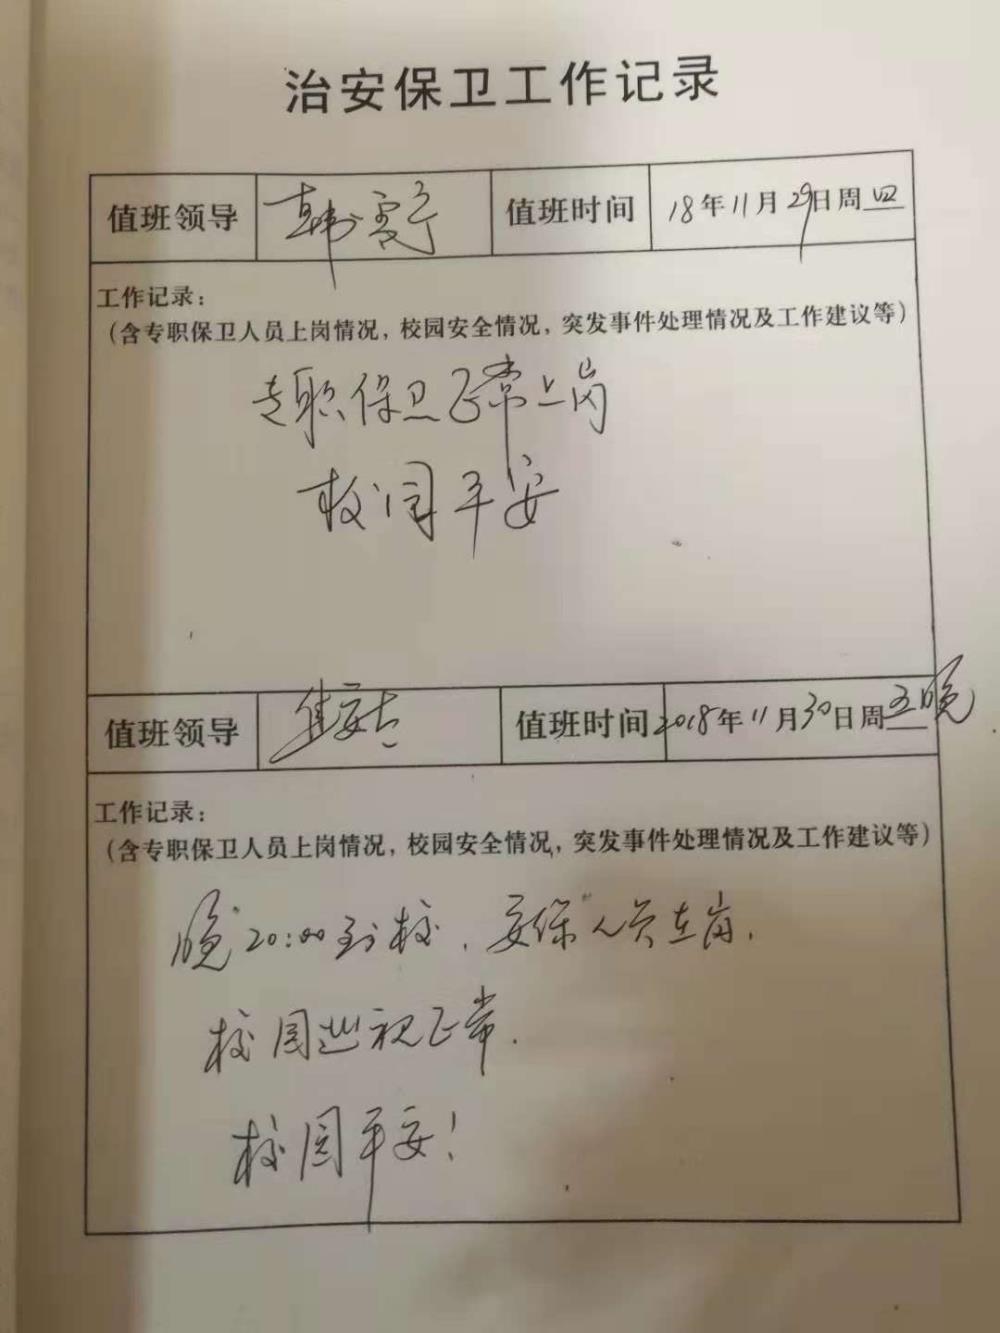 治安保卫工作记录
值班领导 韩 值班时间 18年11月29日周四
工作记录：
（含专职保卫人员上岗情况，校园安全情况，突发事件处理情况及工作建议等）
专职保卫正常上岗
校园平安
值班领导 值班时间 2018年11月30日周五晚
工作记录：
（含专职保卫人员上岗情况，校园安全情况，突发事件处理情况及工作建议等）
晚20:00到校，安保人员在岗，
校园巡视正常.
校园平安！